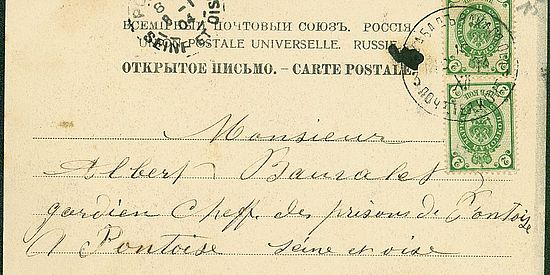 8-1
SEINE-ET-OIS
ВСЕМІРНЫЙ ПОЧТОВЫЙ СОЮЗЪ. РОССІЯ
POSTALE UNIVERSELLE. RUSSIE
ОТКРЫТОЕ ПИСЬМО. – CARTE POSTALE.
Monsieur
Albert
gardien cheff des prisons de Pontoise
A Pontoise seine et oise